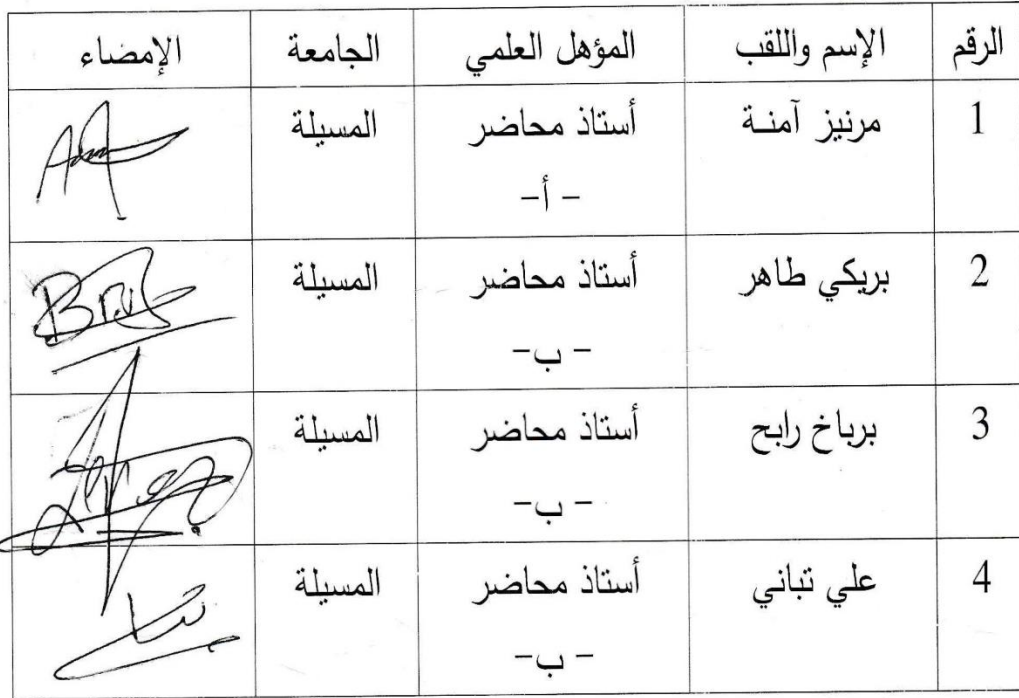 الرقم الإسم واللقب المؤهل العلمي الجامعة الإمضاء
1 مرنيز آمنـة أستاذ محاضر المسيلة
- أ-
2 بريكي طاهر أستاذ محاضر المسيلة
- ب-
3 برباخ رابح أستاذ محاضر المسيلة
- ب-
4 علي تباني أستاذ محاضر المسيلة
- ب-